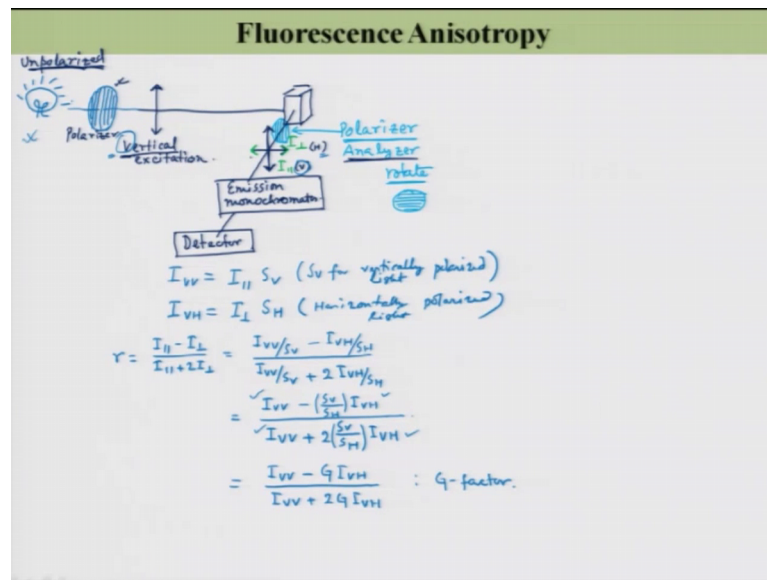 Fluorescence Anisotropy
Unpolarized
Polarizer
Vertical
excitation.
I⊥ (H)
I|| (V)
Polarizer
Analyzer
rotate
Emission
monochromator
Detector
I_VV = I_|| S_V (S_V for vertically polarized light)
I_VH = I_⊥ S_H (Horizontally polarized light)
r = (I_|| - I_⊥)/(I_|| + 2I_⊥) = (I_VV/S_V - I_VH/S_H)/(I_VV/S_V + 2 I_VH/S_H)
= (I_VV - (S_V/S_H) I_VH)/(I_VV + 2(S_V/S_H) I_VH)
= (I_VV - G I_VH)/(I_VV + 2G I_VH) : G-factor.